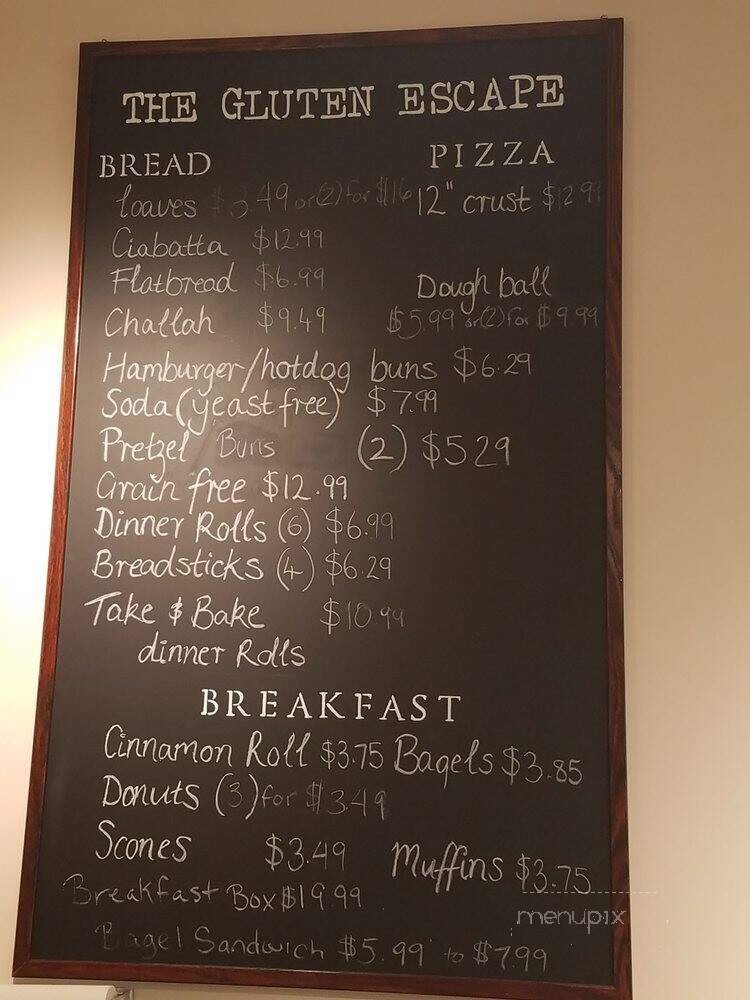 THE GLUTEN ESCAPE
BREAD
loaves 49 or (2) for $16
Ciabatta $12.99
Flatbread $6.99
Challah $9.49
Hamburger/hotdog buns $6.29
Soda (yeast free) $7.99
Pretzel Buns (2) $5.29
Grain free $12.99
Dinner Rolls (6) $6.99
Breadsticks (4) $6.29
Take & Bake $10.99
dinner Rolls
PIZZA
12" crust $12.99
Dough ball
$5.99 or (2) for $9.99
BREAKFAST
Cinnamon Roll $3.75 Bagels $3.85
Donuts (3) for $3.49
Scones $3.49 Muffins $3.75
Breakfast Box $19.99
Bagel Sandwich $5.99 to $7.99
menupix